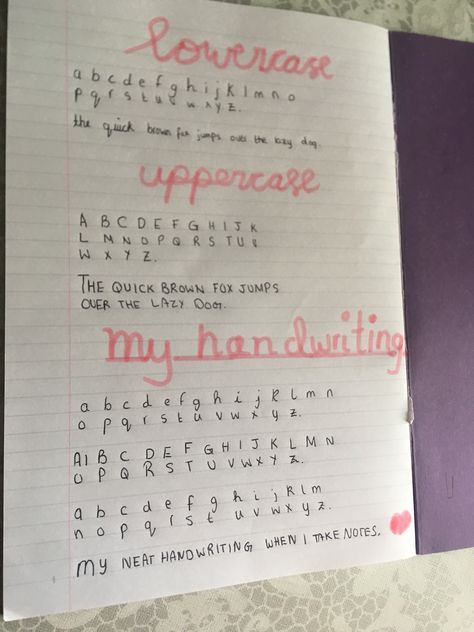 lowercase
a b c d e f g h i j k l m n o
p q r s t u v w x y z.
the quick brown fox jumps over the lazy dog.
uppercase
A B C D E F G H I J K
L M N O P Q R S T U V
W X Y Z.
THE QUICK BROWN FOX JUMPS
OVER THE LAZY DOG.
my handwriting
a b c d e f g h i j k l m n
o p q r s t u v w x y z.
A1 B C D E F G H I J K L M N
O P Q R S T U V W X Y Z.
a b c d e f g h i j k l m
n o p q r s t u v w x y z.
MY NEAT HANDWRITING WHEN I TAKE NOTES.